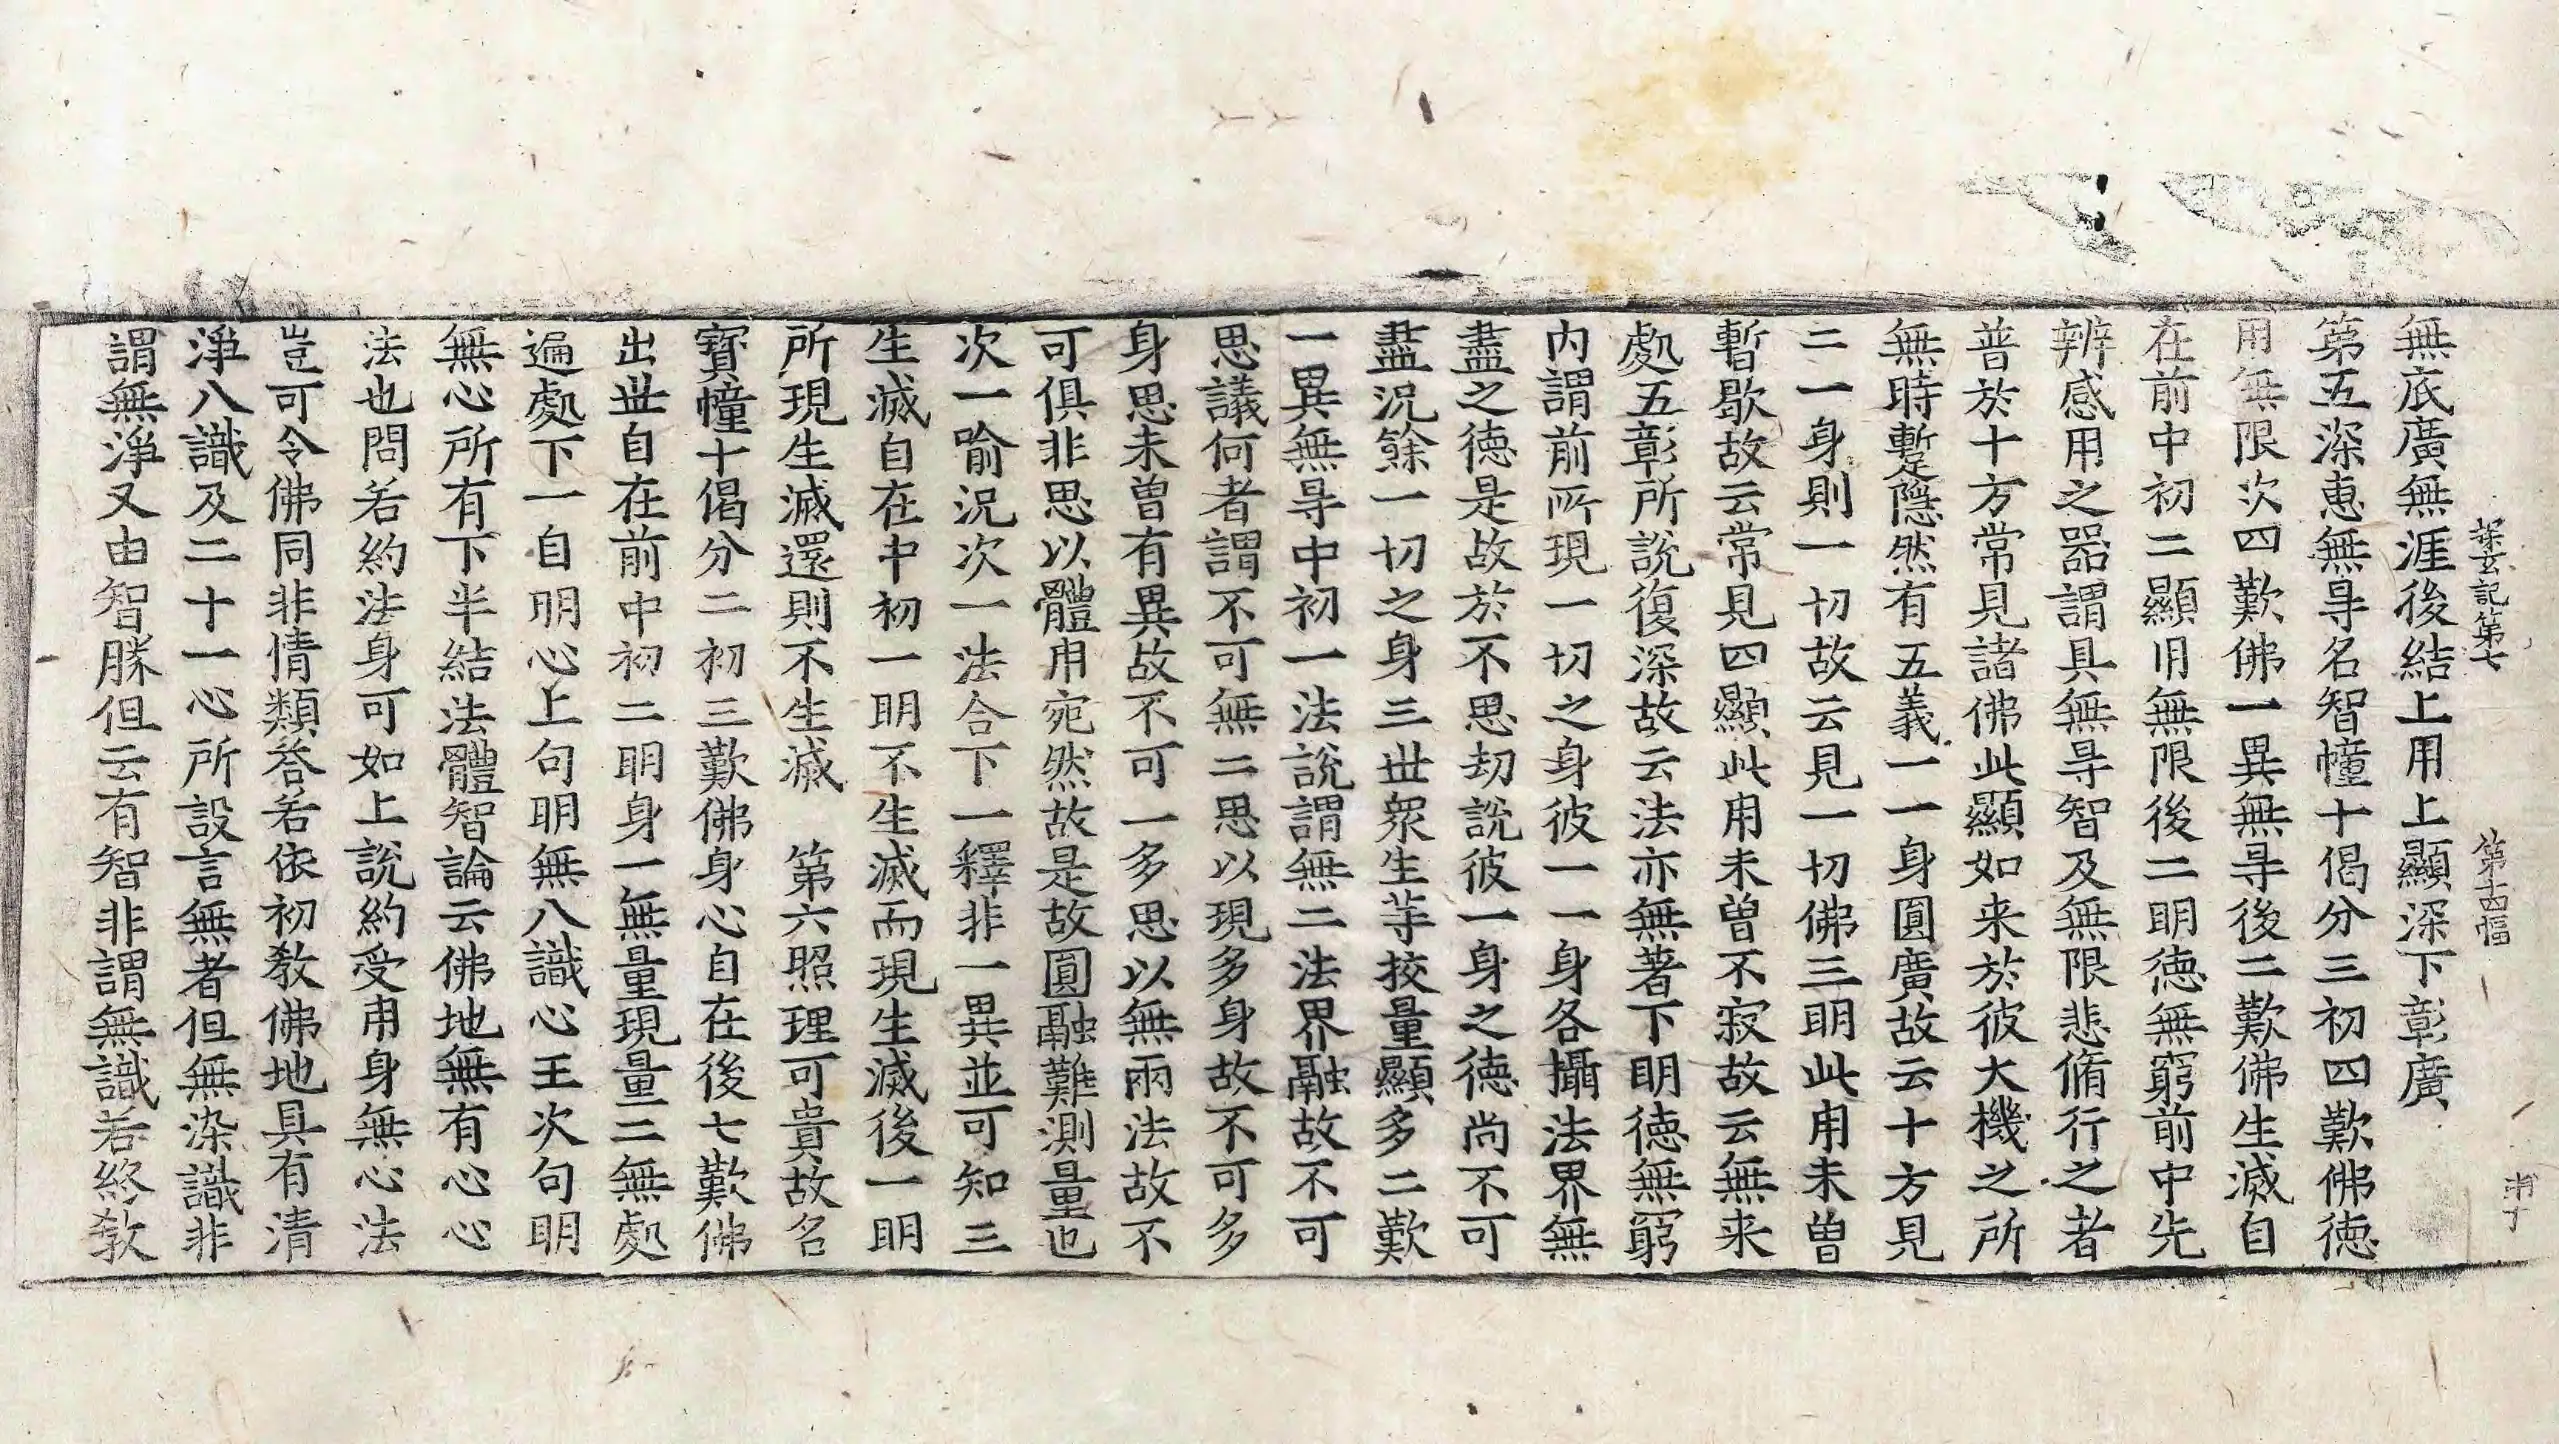 探玄記第七 第十四幅
無底廣無涯後結上用上顯深下彰廣
第五深恵無㝵名智幢十偈分三初四歎佛徳
用無限次四歎佛一異無㝵後二歎佛生滅自
在前中初二顯用無限後二明徳無窮前中先
辨感用之器謂具無㝵智及無限悲脩行之者
普於十方常見諸佛此顯如来於彼大機之所
無時蹔隱然有五義一一身圓廣故云十方見
二一身則一切故云見一切佛三明此用未曽
暫歇故云常見四顯此用未曽不寂故云無来
處五彰所說復深故云法亦無著下明徳無窮
内謂前所現一切之身彼一一身各攝法界無
盡之徳是故於不思劫說彼一身之徳尚不可
盡況餘一切之身三世衆生䓁挍量顯多二歎
一異無㝵中初一法說謂無二法界融故不可
思議何者謂不可無二思以現多身故不可多
身思未曽有異故不可一多思以無兩法故不
可俱非思以體用宛然故是故圓融難測量也
次一喻況次一法合下一釋非一異並可知三
生滅自在中初一明不生滅而現生滅後一明
所現生滅還則不生滅　第六照理可貴故名
寶幢十偈分二初三歎佛身心自在後七歎佛
出世自在前中初二明身一無量現量二無處
遍處下一自明心上句明無八識心王次句明
無心所有下半結法體智論云佛地無有心心
法也問若約法身可如上說約受用身無心法
豈可令佛同非情類荅若依初教佛地具有清
淨八識及二十一心所設言無者但無染識非
謂無淨又由智勝但云有智非謂無識若終教